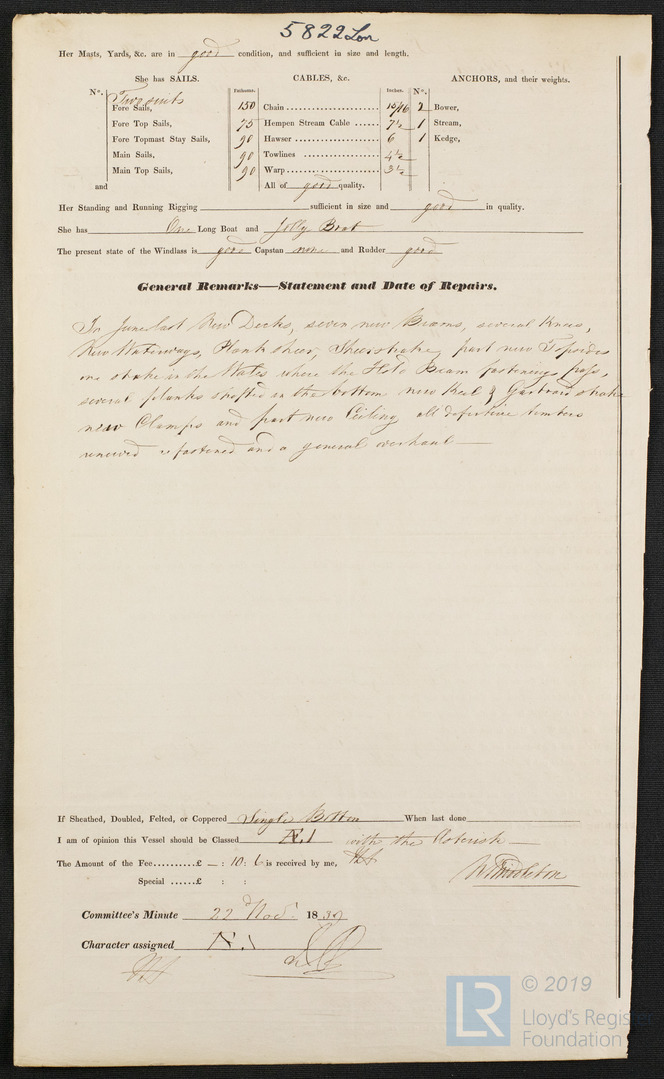 5822 Lon
Her Masts, Yards, &c. are in good condition, and sufficient in size and length.
She has SAILS. CABLES, &c. ANCHORS, and their weights.
No. Fathoms. Inches. No.
Two suits
Fore Sails, 150 Chain 15/16 2 Bower,
Fore Top Sails, 75 Hempen Stream Cable 7½ 1 Stream,
Fore Topmast Stay Sails, 90 Hawser 6 1 Kedge,
Main Sails, 90 Towlines 4½
Main Top Sails, 90 Warp 3½
and All of good quality.
Her Standing and Running Rigging sufficient in size and good in quality.
She has One Long Boat and Jolly Boat
The present state of the Windlass is good Capstan none and Rudder good
General Remarks—Statement and Date of Repairs.
In June last New Decks, seven new Beams, several Knees,
New Waterways, Planksheer, Sheerstrake, part new Topsides
one strake in the Wales where the Hold Beam fastenings pass,
several planks shifted in the bottom new Keel & Garboard strake
new Clamps and part new Ceiling all defective timbers
renewed refastened and a general overhaul
If Sheathed, Doubled, Felted, or Coppered Single Bottom When last done
I am of opinion this Vessel should be Classed Æ.1 with the Asterisk
The Amount of the Fee £ — : 10 : 6 is received by me,
W Middleton
Special £ : :
Committee's Minute 22 Nov. 1839
Character assigned Æ.1
LR © 2019
Lloyd's Register
Foundation